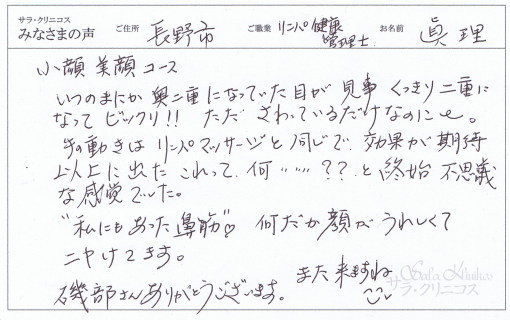 サラ・クリニコス
みなさまの声
ご住所 長野市
ご職業 リンパ健康管理士
お名前 眞理
小顔 美顔 コース
いつのまにか奥二重になっていた目が 見事 くっきり二重に
なって ビックリ!! ただ さわっているだけなのにe。
手の動きは リンパマッサージと 同じで、効果が 期待
以上に 出た これって 何……??と 終始 不思議
な 感覚でした。
“私にもあった鼻筋”♡ 何だか 顔が うれしくて
ニヤけてます。
また 来ますね
磯部さん ありがとうございます。
Sala Klinikos
サラ・クリニコス